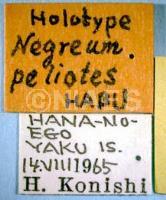 Holotype
Negreum.
peliotes
HABU
NIAES
HANA-NO-
EGO
YAKU IS.
14.VIII1965
H. Konishi